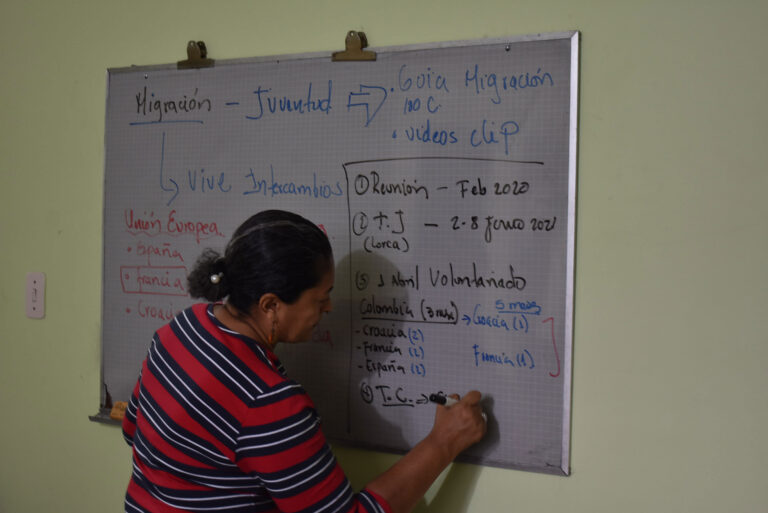 Migración - Juventud ⇒ • Guia Migración
100 C.
• videos clip
Vive Intercambios
Unión Europea
• España
• Francia
• Croacia
① Reunión - Feb 2020
② T. J - 2-8 2021
(Lorca)
③ 1 Abril Voluntariado
Colombia (3 → Croacia (1)
5 meses
- Croacia (2)
- Francia (2) Francia (1)
- España (2)
④ T. C. →